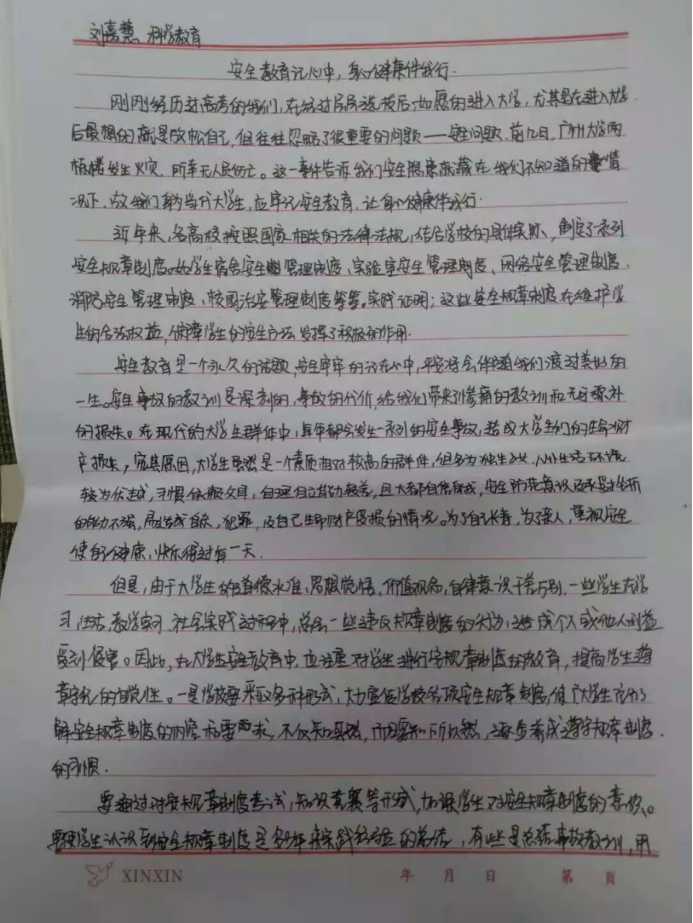 刘嘉慧、科学教育
安全教育记心中，身心健康伴我行.
刚刚经历过高考的我们，在经过层层选拔后如愿的进入大学，尤其是在进入大学
后最想的就是放松自己，但往往忽略了很重要的问题——安全问题.前几日，广州大学两
栋楼发生火灾，所幸无人员伤亡。这一事件告诉我们安全隐患就藏在我们不知道的事情
况下，故我们身为当代大学生，应牢记安全教育，让身心健康伴我行.
近年来，各高校按照国家相关的法律法规，结合学校的具体实际、制定了系列
安全规章制度.如学生宿舍安全管理制度、实验室安全管理制度、网络安全管理制度、
消防安全管理制度、校园治安管理制度等等.实践证明：这些安全规章制度在维护学
生的合法权益，保障学生的安全方面发挥了积极的作用.
安全教育是一个永久的话题，安全牢牢的记在心中，平安将会伴随我们渡过美好的
一生。安全事故的教训是深刻的，事故的代价，给我们带来了惨痛的教训和无可弥补
的损失。在现代的大学生群体中，每年都会发生一系列的安全事故，造成大学生们的生命财
产损失，究其原因，大学生虽然是一个素质相对较高的群体，但多为独生子女，从小生活环境
较为优越，习惯依赖父母，自理自立能力较差，且大都自信自我，安全防范意识及承受挫折
的能力不强，易造成自杀，犯罪，及自己生命财产受损的情况。为了自己，为了亲人，重视安全
使身心健康，快乐得过每一天.
但是，由于大学生的道德水准，思想觉悟，价值观念，自律意识千差万别，一些学生在学
习，生活，教学实习，社会实践过程中，总会一些违反规章制度的行为，造成个人或他人利益
受到侵害。因此，在大学生安全教育中，应注重对学生进行安全规章制度的教育，提高学生遵
章守纪的自觉性。一是学校要采取多种形式，大力宣传学校各项安全规章制度，使广大学生充分了
解安全规章制度的内容和要求，不仅知其然，而且要知所以然，逐步养成遵守规章制度
的习惯.
要通过对安全规章制度考试，知识竞赛等形式，加深学生对安全规章制度的意识。
要学生认识到安全规章制度是多年来实践经验的总结，有些是总结事故教训，用
XINXIN 年 月 日 第 頁